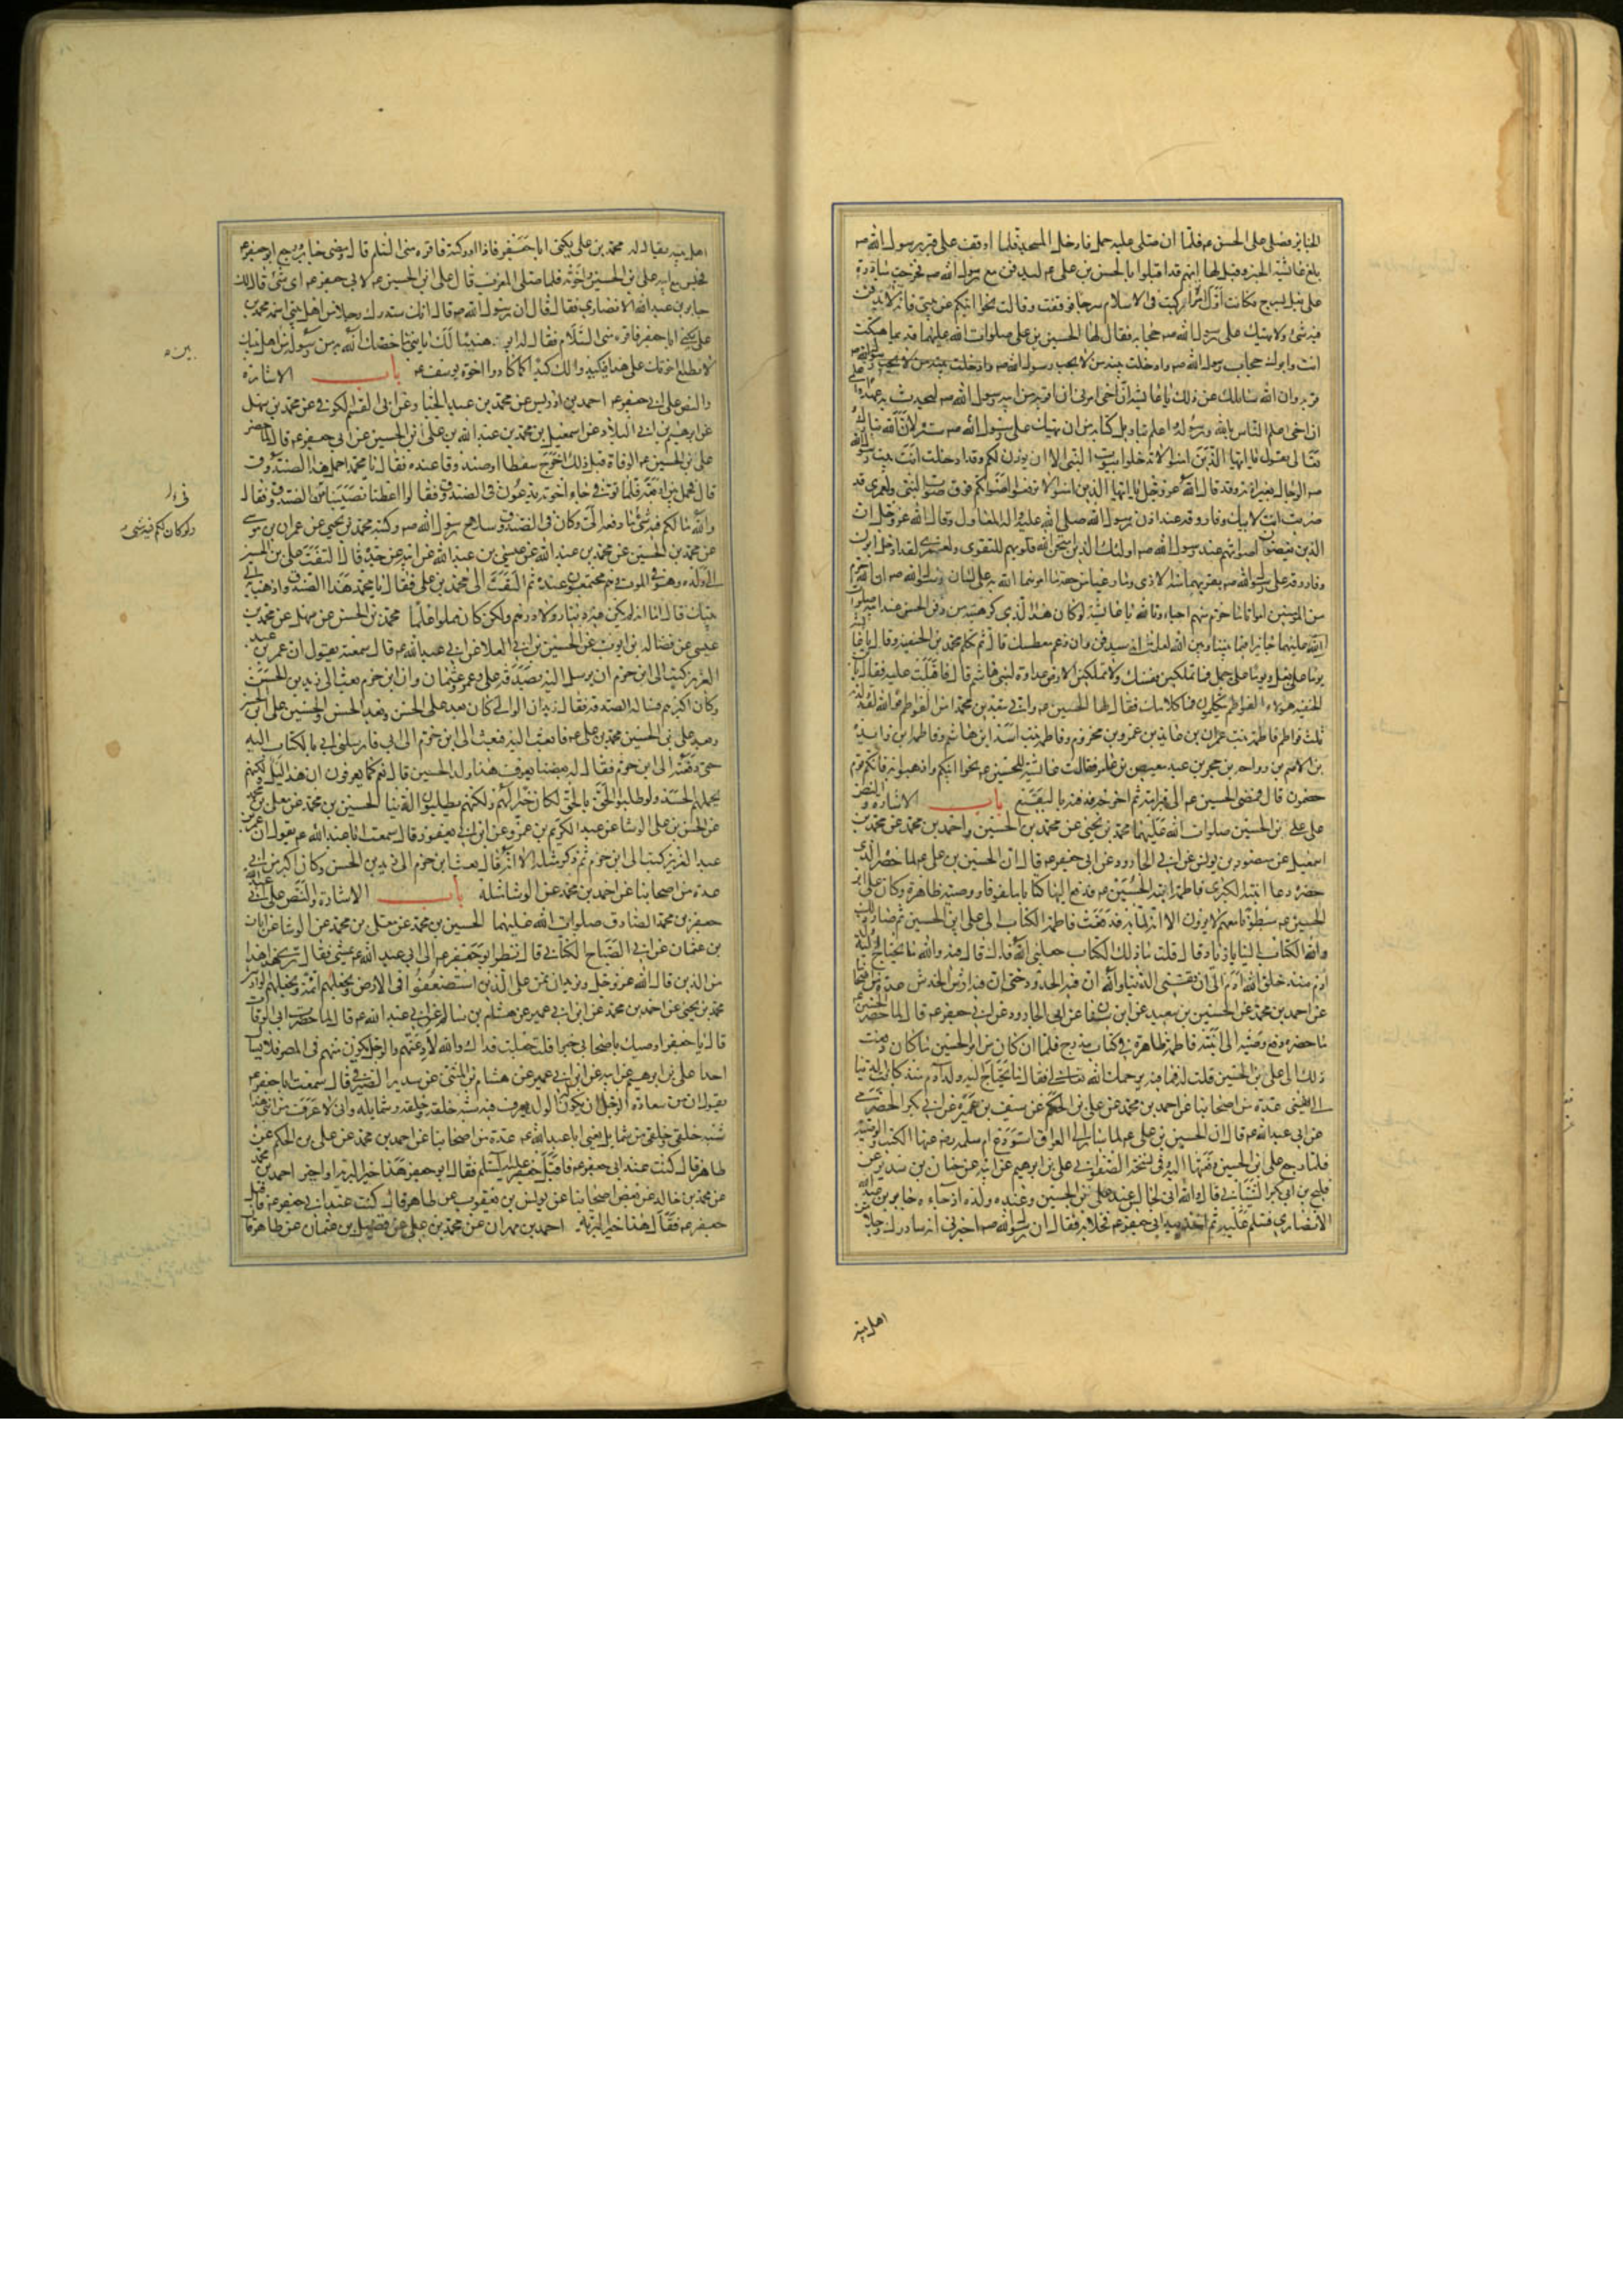 الجنايز فصلى على الحسن عه فلما ان صلى عليه حمل فادخل المسجد فلما اوقف على قبر رسول الله صه
بلغ عايشة الخبر وقيل لها انهم قد اقبلوا بالحسن بن على عه ليدفن مع رسول الله صه فخرجت مبادرة
على بغل بسرج فكانت اول امراة ركبت فى الاسلام سرجا فوقفت وقالت نحوا ابنكم عن بيتى فانه لا يدفن
فيه شئ ولا يهتك على رسول الله صه حجابه فقال لها الحسين بن على صلوات الله عليهما قديما هتكت
انت وابوك حجاب رسول الله صه وادخلت بيته من لا يحب رسول الله صه
قربه وان الله سايلك عن ذلك يا عايشة ان اخى امرنى ان اقربه من ابيه رسول الله صه ليحدث به عهدا
ان اخى اعلم الناس بالله ورسوله واعلم بتاويل كتابه من ان يهتك على رسول الله صه ستره لان الله تبارك
وتعالى يقول يا ايها الذين امنوا لا تدخلوا بيوت النبى الا ان يؤذن لكم وقد ادخلت انت بيت رسول الله
صه الرجال بغير اذنه وقد قال الله عز وجل يا ايها الذين امنوا لا ترفعوا اصواتكم فوق صوت النبى ولعمرى قد
ضربت انت لابيك وفاروقه عند اذن رسول الله صلى الله عليه واله المعاول وقال الله عز وجل ان
الذين يغضون اصواتهم عند رسول الله صه اولئك الذين امتحن الله قلوبهم للتقوى ولعمرى لقد ادخل ابوك
وفاروقه على رسول الله صه بقربهما منه الاذى وما رعيا من حقه ما امرهما الله به على لسان رسول الله صه ان الله حرم
من المؤمنين امواتا ما حرم منهم احياء وتالله يا عايشة لو كان هذا الذى كرهتيه من دفن الحسن عند ابيه صلوات
الله عليهما جايزا فيما بيننا وبين الله لعلمت انه سيدفن وان رغم معطسك قال ثم تكلم محمد بن الحنفية وقال يا عايشة
يوما على بغل ويوما على جمل فما تملكين نفسك ولا تملكين الارض عداوة لبنى هاشم قال فاقبلت عليه فقالت يابن
الحنفية هؤلاء الفواطم يتكلمون فما كلامك فقال لها الحسين عه وانى تبعدين محمدا من الفواطم فوالله لقد ولدته
ثلث فواطم فاطمة بنت عمران بن عايذ بن عمرو بن مخزوم وفاطمة بنت اسد بن هاشم وفاطمة بنت زايدة
بن الاصم بن رواحه بن حجر بن عبد معيص بن عامر فقالت عايشة للحسين عه نحوا ابنكم واذهبوا به فانكم قوم
خصمون قال فمضى الحسين عه الى قبر امه ثم اخرجه فدفنه بالبقيع باب الاشارة والنص
على على بن الحسين صلوات الله عليهما محمد بن يحيى عن محمد بن الحسين واحمد بن محمد عن محمد بن
اسمعيل عن منصور بن يونس عن ابى الجارود عن ابى جعفر عه قال ان الحسين بن على عه لما حضره الذى
حضره دعا ابنته الكبرى فاطمة ابنة الحسين عه فدفع اليها كتابا ملفوفا ووصية ظاهرة وكان على بن
الحسين عه مبطونا معهم لا يرون الا انه لما به فدفعت فاطمة الكتاب الى على ابن الحسين ثم صار
والله الكتاب الينا يا زياد قال قلت ما ذلك الكتاب جعلنى الله فداك قال فيه والله ما يحتاج اليه ولد
ادم منذ خلق الله ادم الى ان تفنى الدنيا والله ان فيه الحدود حتى ان فيه ارش الخدش عدة من اصحابنا
عن احمد بن محمد عن الحسين بن سعيد عن ابن سنان عن ابى الجارود عن ابى جعفر عه قال لما حضر الحسين عه
ما حضره دفع وصيته الى ابنته فاطمة ظاهرة فى كتاب مدرج فلما ان كان من امر الحسين ما كان دفعت
ذلك الى على بن الحسين قلت له فما فيه يرحمك الله فقال ما يحتاج اليه ولد ادم منذ كانت الدنيا
الى ان تفنى عدة من اصحابنا عن احمد بن محمد عن على بن الحكم عن سيف بن عميرة عن ابى بكر الحضرمى
عن ابى عبد الله عه قال ان الحسين بن على عه لما سار الى العراق استودع ام سلمه رضى عنها الكتب والوصية
فلما رجع على ابن الحسين دفعتها اليه وفى نسخة الصفوانى على بن ابرهيم عن ابيه عن حنان بن سدير عن
فليح بن ابى بكر الشيبانى قال والله انى لجالس عند على بن الحسين وعنده ولده اذ جاءه جابر بن عبد الله
الانصارى فسلم عليه ثم اخذ بيد ابى جعفر عه فخلا به فقال ان رسول الله صه اخبرنى انى سادرك رجلا من
اهل بيته
اهل بيته يقال له محمد بن على يكنى ابا جعفر فاذا ادركته فاقره منى السلم قال ومضى جابر ورجع ابو جعفر عه
فجلس مع ابيه على بن الحسين واخوته فلما صلى المغرب قال على بن الحسين عه لابى جعفر عه اى شئ قال لك
جابر بن عبد الله الانصارى فقال قال ان رسول الله صه قال انك ستدرك رجلا من اهل بيتى اسمه محمد بن
على يكنى ابا جعفر فاقره منى السلام فقال له ابوه هنيئا لك يا بنى ما خصك الله به من رسوله من اهل بيتك
لا تطلع اخوتك على هذا فيكيدوا لك كيدا كما كادوا اخوة يوسف عه باب الاشارة
والنص على ابى جعفر عه احمد بن ادريس عن محمد بن عبد الجبار عن ابى القسم الكوفى عن محمد بن سهل
عن ابرهيم بن ابى البلاد عن اسمعيل بن محمد بن عبد الله بن على ابن الحسين عن ابى جعفر عه قال لما حضر
على بن الحسين عه الوفاة قبل ذلك اخرج سفطا او صندوقا عنده فقال يا محمد احمل هذا الصندوق
قال فحمل بين اربعة فلما توفى جاء اخوته يدعون فى الصندوق فقالوا اعطنا نصيبنا من الصندوق فقال
والله ما لكم فيه شئ ما دفعه الى وكان فى الصندوق سلاح رسول الله صه وكتبه محمد بن يحيى عن عمران بن موسى
عن محمد بن الحسين عن محمد بن عبد الله عن عيسى بن عبد الله عن ابيه عن جده قال التفت على بن الحسين
الى ولده وهو فى الموت وهم مجتمعون عنده ثم التفت الى محمد بن على فقال يا محمد هذا الصندوق اذهب به الى
بيتك قال اما انه لم يكن فيه دينار ولا درهم ولكن كان مملوا علما محمد بن الحسن عن سهل عن محمد بن
عيسى عن فضالة بن ايوب عن الحسين بن ابى العلا عن ابى عبد الله عه قال سمعته يقول ان عمر بن عبد
العزيز كتب الى ابن حزم ان يرسل اليه بصدقة على وعمر وعثمان وان ابن حزم بعث الى زيد بن الحسن
وكان اكبرهم فساله الصدقة فقال زيد ان الوالى كان بعد على الحسن وبعد الحسن الحسين وبعد الحسين على بن الحسين
وبعد على بن الحسين محمد بن على عه فابعث اليه فبعث الى ابن حزم الى ابى فارسلنى ابى بالكتاب اليه
حتى دفعته الى ابن حزم فقال له بعضنا يعرف هذا ولد الحسن قال نعم كما يعرفون ان هذا ليل ولكنهم
يحملهم الحسد ولو طلبوا الحق بالحق لكان خيرا لهم ولكنهم يطلبون الدنيا الحسين بن محمد عن معلى بن محمد
عن الحسن بن على الوشا عن عبد الكريم بن عمرو عن ابن ابى يعفور قال سمعت ابا عبد الله عه يقول ان عمر بن
عبد العزيز كتب الى ابن حزم ثم ذكر مثله الا انه قال بعث ابن حزم الى زيد بن الحسن وكان اكبر من ابى
عدة من اصحابنا عن احمد بن محمد عن الوشا مثله باب الاشارة والنص على ابى عبد الله
جعفر بن محمد الصادق صلوات الله عليهما الحسين بن محمد عن معلى بن محمد عن الوشا عن ابان
بن عثمان عن ابى الصباح الكنانى قال نظر ابو جعفر عه الى ابى عبد الله عه يمشى فقال ترى هذا هذا
من الذين قال الله عز وجل ونريد ان نمن على الذين استضعفوا فى الارض ونجعلهم ائمة ونجعلهم الوارثين
محمد بن يحيى عن احمد بن محمد عن ابن ابى عمير عن هشام بن سالم عن ابى عبد الله عه قال لما حضرت ابى الوفاة
قال يا جعفر اوصيك باصحابى خيرا قلت جعلت فداك والله لادعنهم والرجل يكون منهم فى المصر فلا يسال
احدا على بن ابرهيم عن ابيه عن ابن ابى عمير عن هشام بن المثنى عن سدير الصيرفى قال سمعت ابا جعفر عه
يقول ان من سعادة الرجل ان يكون له الولد يعرف فيه شبه خلقه وخلقه وشمايله وانى لاعرف من ابنى هذا
شبه خلقى وخلقى وشمايلى يعنى ابا عبد الله عه عدة من اصحابنا عن احمد بن محمد عن على بن الحكم عن
طاهر قال كنت عند ابى جعفر عه فاقبل جعفر عليه السلم فقال ابو جعفر هذا خير البرية او اخير احمد بن محمد
عن محمد بن خالد عن بعض اصحابنا عن يونس بن يعقوب عن طاهر قال كنت عند ابى جعفر عه فاقبل
جعفر عه فقال هذا خير البرية احمد بن مهران عن محمد بن على عن فضيل بن عثمان عن طاهر قال
ولو كان لكم فيه شئ